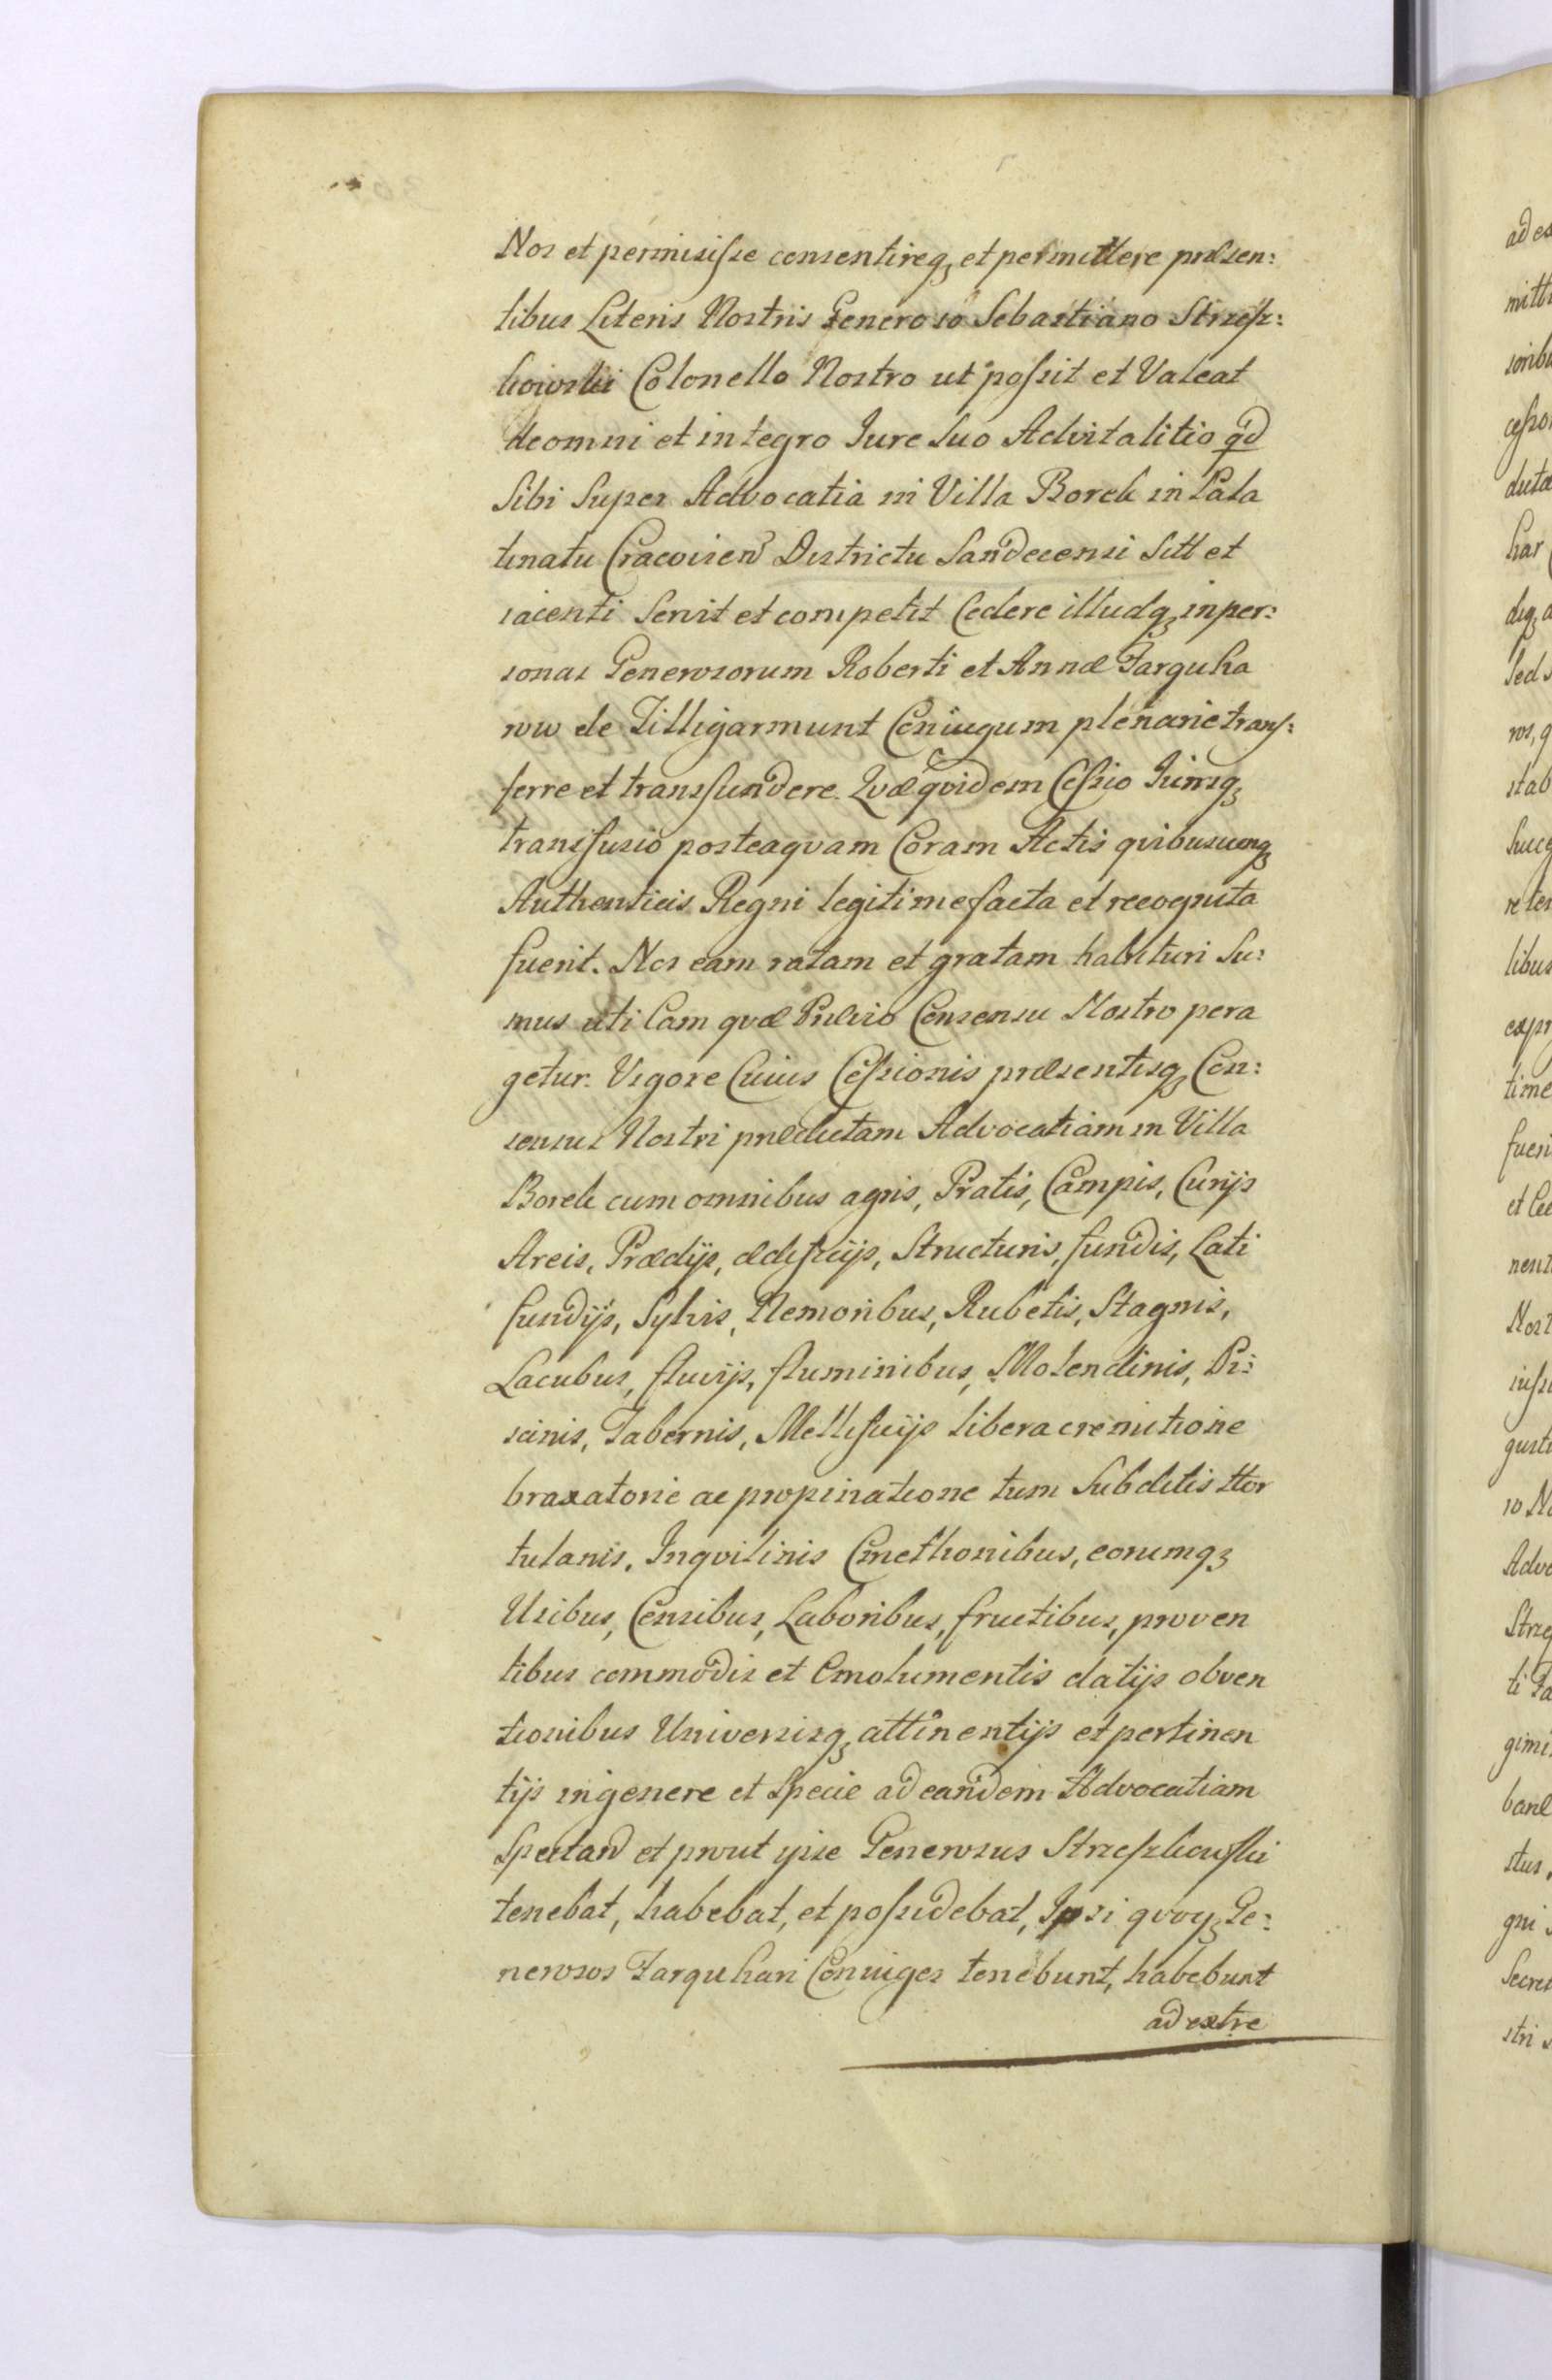 Nos et permisisse consentireq́ʒ et permittere præsen:
tibus Literis Nostris Generoso Sebastiano Strzesz:
kowski Colonello Nostro ut possit et Valeat
de omni et integro Iure Suo Advitalitio qd
Sibi Super Advocatia in Villa Borek in Pala
tinatu Cracovien Districtu Sandecensi Sitt et
iacenti Servit et competit Cedere illudqʒ in per:
sonas Generosorum Roberti et Annæ Farquha
row de Tilligarmunt Coniugum plenarie trans:
ferre et transfundere. Qvæqvidem Cessio Iurisqʒ
transfusio posteaqvam Coram Actis qvibusuncqʒ
Authenticis Regni legitime facta et recognita
fuerit. Nos eam ratam et gratam habituri Su:
mus uti Eam qvæ Prævio Consensu Nostro pera
getur. Vigore Cuius Cessionis præsentisqʒ Con:
sensus Nostri prædictam Advocatiam in Villa
Borek cum omnibus agris, Pratis, Campis, Curijs
Areis, Prædijs, ædificijs, Structuris, fundis, Lati
fundijs, Sylvis, Nemoribus, Rubetis, Stagnis,
Lacubus, fluvijs, fluminibus, Molendinis, Pi:
scinis, Tabernis, Mellificijs libera cremitione
braxatorie ac propinatione tum Subditis Hor
tulanis, Inqvilinis Cmethonibus, eorumqʒ
Usibus, Censibus, Laboribus, fructibus, proven
tibus commodis et Emolumentis datijs obven
tionibus Universisqʒ attinentijs et pertinen
tijs in genere et Specie ad eandem Advocatiam
Spectand et prout ipse Generosus Strzeszkowski
tenebat, habebat, et possidebat, Ipsi qvoqʒ Ge:
nerosos Farquhari Coniuges tenebunt, habebunt
ad extre